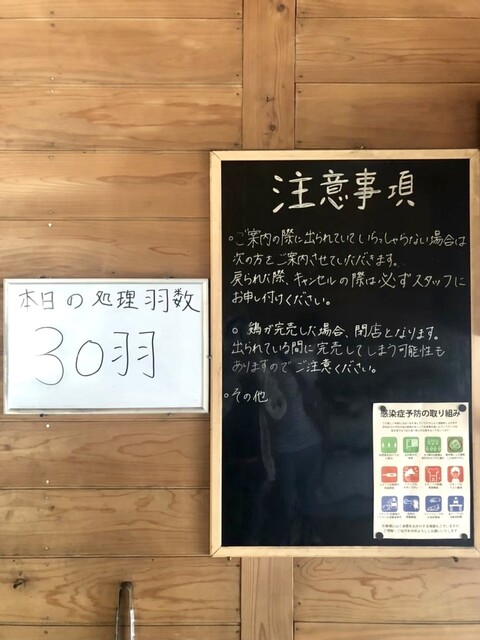 本日の処理羽数
30羽
注意事項
○ご案内の際に出られていていらっしゃらない場合は
次の方をご案内させていただきます。
戻られた際、キャンセルの際は必ずスタッフに
お申し付けください。
○ 鶏が完売した場合、閉店となります。
出られている間に完売してしまう可能性も
ありますのでご注意ください。
○その他
感染症予防の取り組み